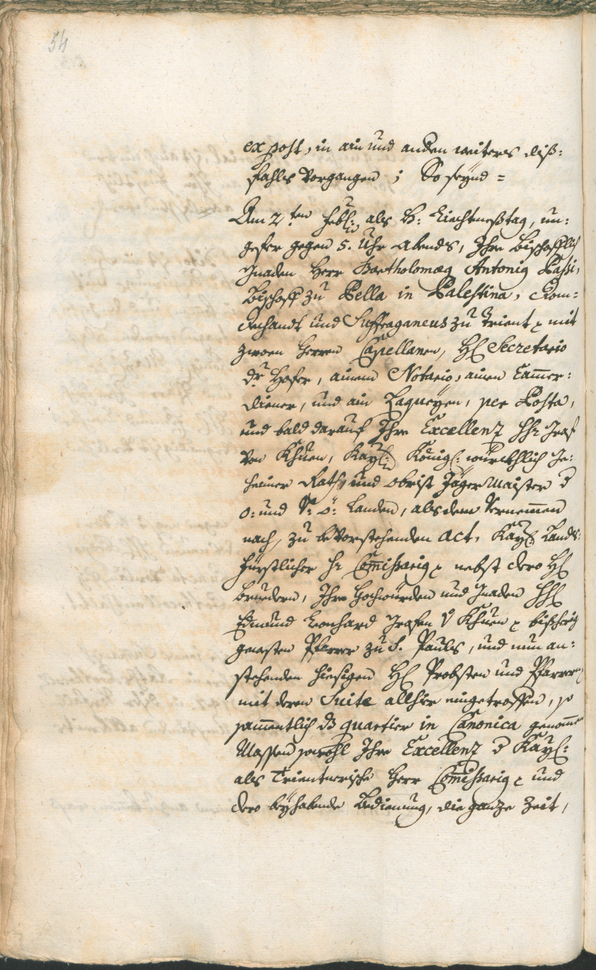 54
ex post, in ain und anders weiters diß:
fahls vorgangen; So seynd =
Am 2ten Febr: als H: Liechtmeßtag, un:
gefer gegen 5. Uhr Abends, Ihro Bischöfflich
Gnaden Herr Bartholomæg Antonig Passi,
Bischoff zu Pella in Palestina,
und Suffraganeus zu Trient mit
zween Herren Capellanen, HE Secretario
de Hofer, ainem Notario, ainen Cammer:
diener, und ain Laqueyen, per Posta,
und bald darauf Ihro Excellenz HE: Graf
von Khuen, Kayl: Königl: würckhlich Ge:
heimer Rath, und obrist Jägermaister d
o: und V: ö: Landen, als dem Vernemmen
nach, zu bevorstehenden act, Kayl Lands:
fürstlicher HE Commissarig nebst dero HE
Bruedern, Ihro Hochwürden und Gnaden HE
Edmund Leonhard Grafen v Khuen bißherig
gewesten Pfarrer zu S. Pauls, und nun an:
stehenden hiesigen HE Probsten und Pfarrern
mit deren Suite allhir eingetroffen, so
sammentlich dz quartier in Canonica genommen
Massen sowohl Ihro Excellenz d Kayl:
als Trientnerische Herr Commissarig und
dero beyhabende Bedienung, die ganze Zeit,